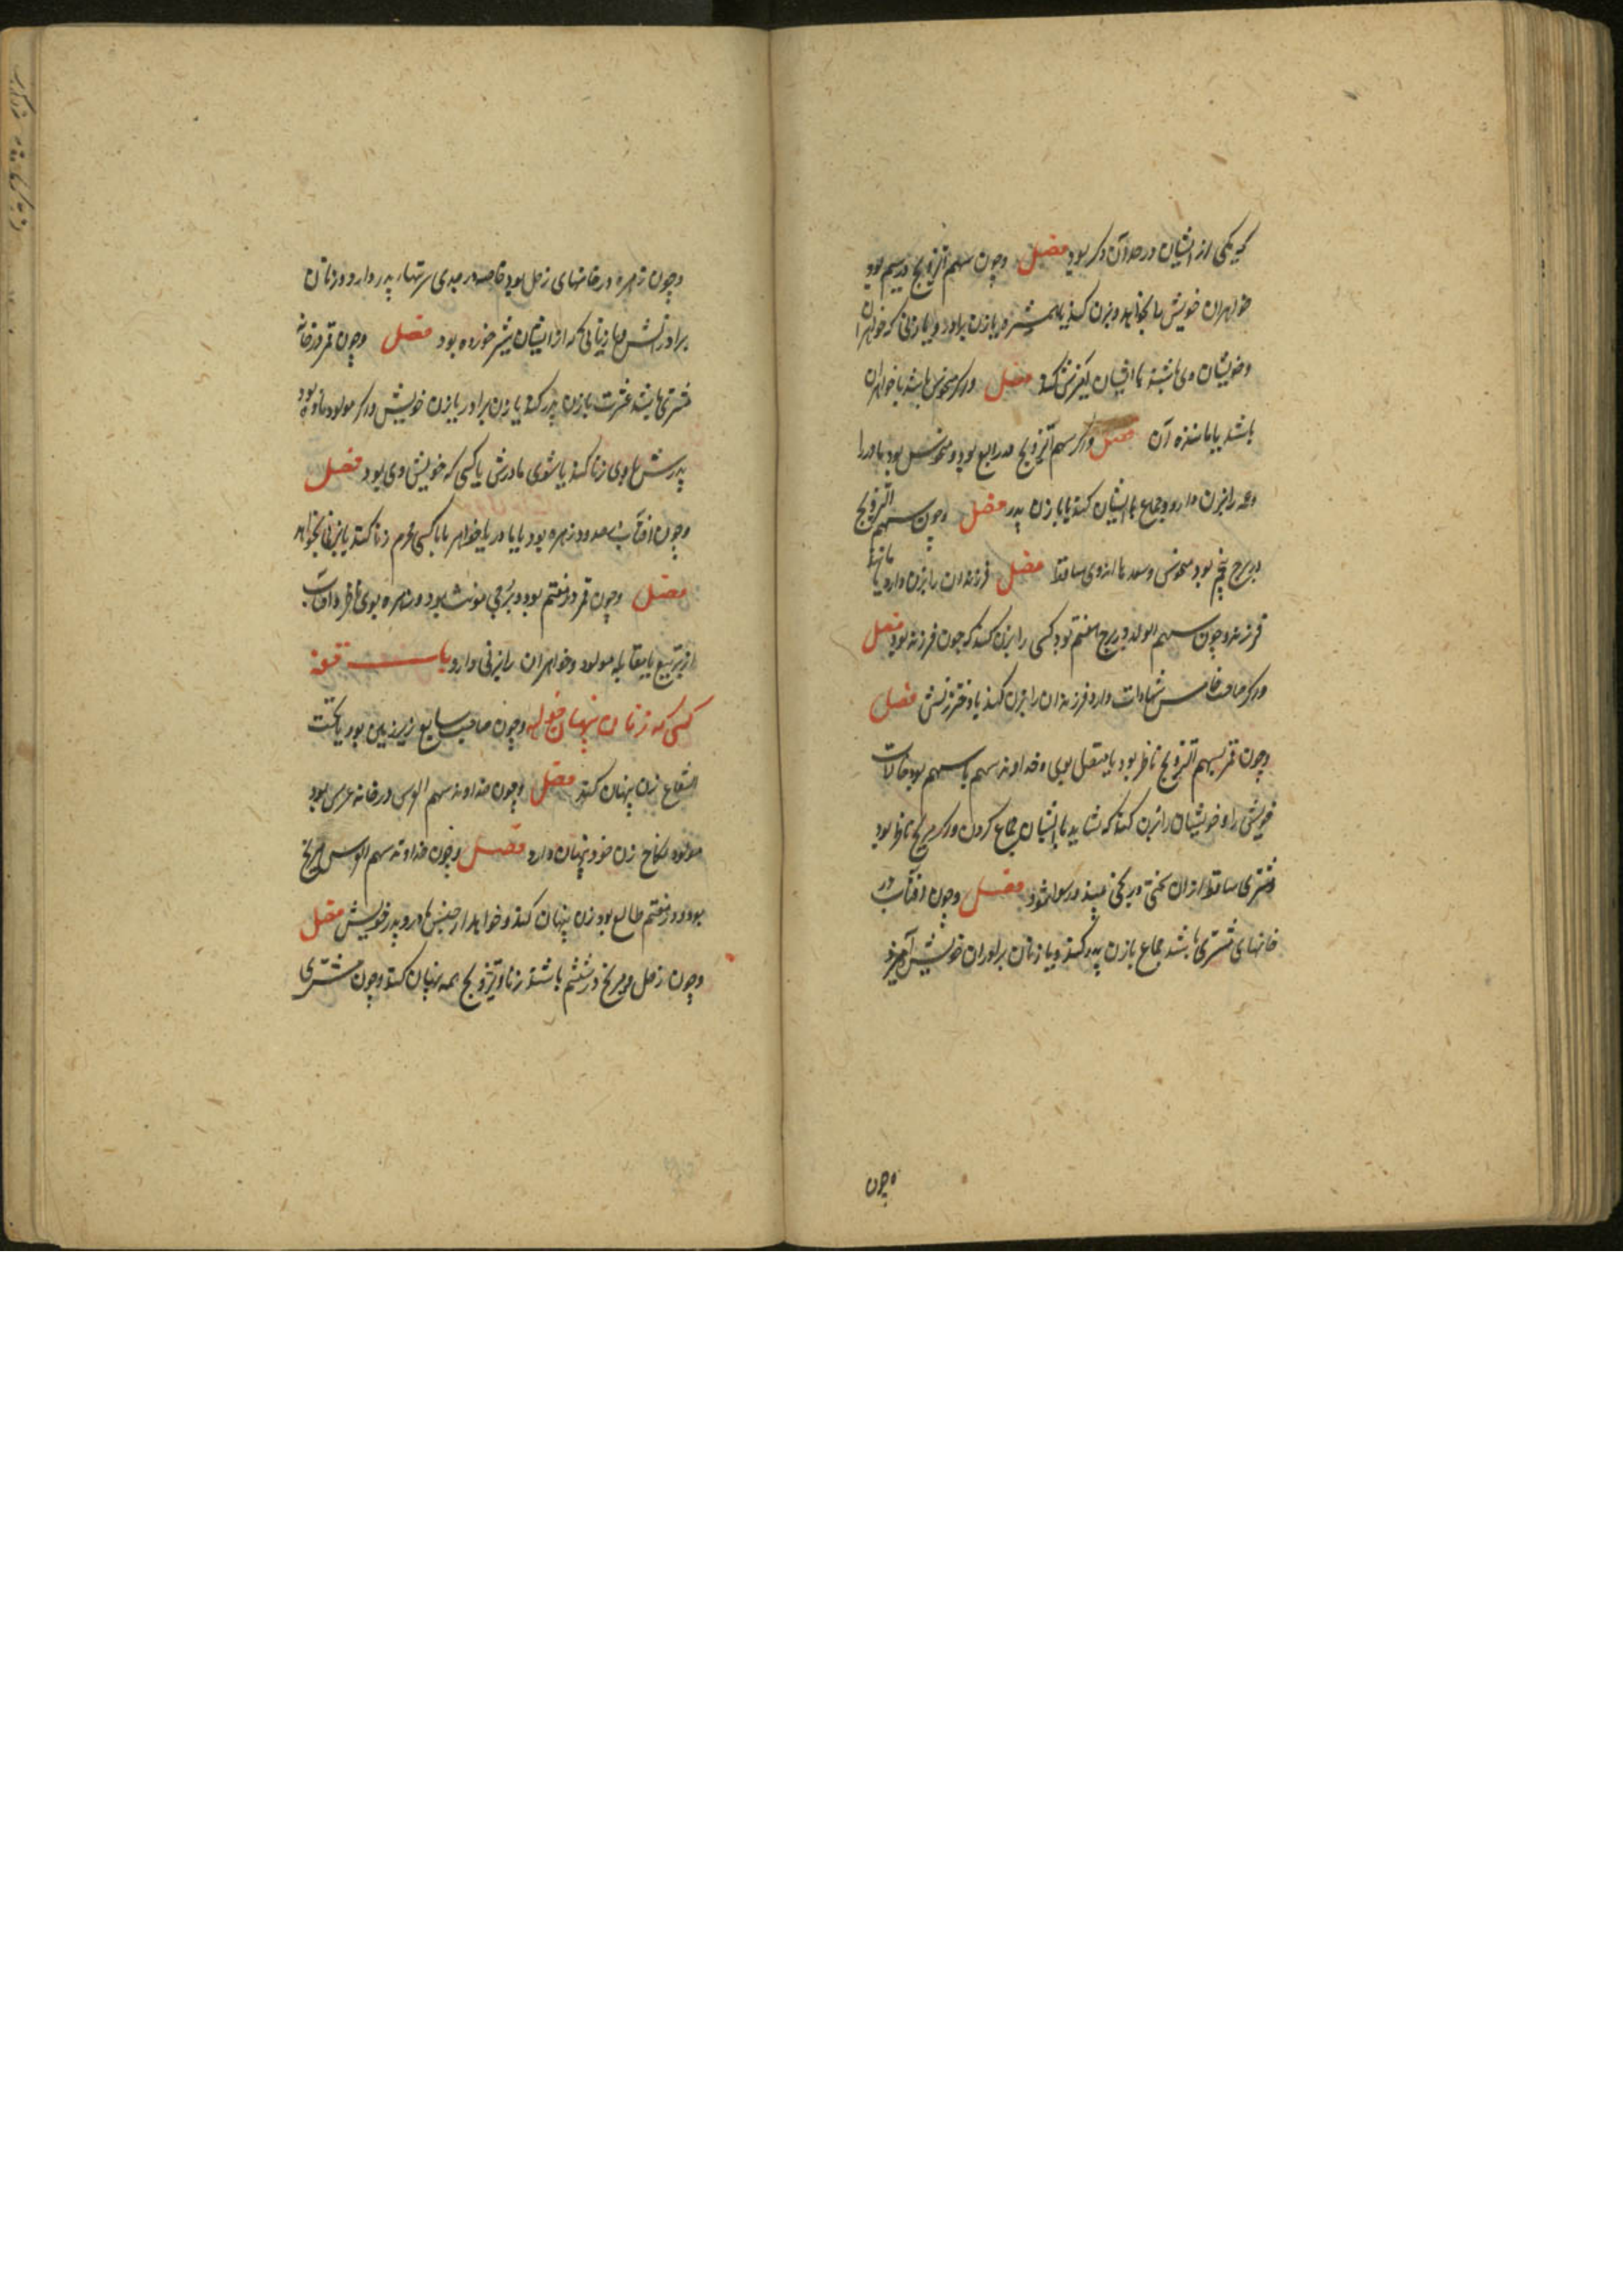 که یکی از ایشان در حد آن دگر بود فصل وچون سهم التزویج در سیم بود
خواهران خویش را بخواهد و بزن کند یا همشیره یا زن برادر و یا زنی که خواهران
وخویشان وی باشند با ایشان آمیزش کند فصل وگر منحوس باشد با خواهران
باشد یا مانندهٔ آن فصل وگر سهم التزویج در رابع بود ومنحوس بود مادر را
وعمه را بزن دارد وجماع با ایشان کند یا با زن پدر فصل وچون سهم التزویج
در برج پنجم بود منحوس وسعدها از وی ساقط فصل فرزندان را بزن دارد یا مانند
فرزند وچون سهم الولد در برج هفتم بود کسی را بزن کند که چون فرزند بود فصل
وگر صاحب خامس شهادات دارد فرزندان را بزن کند یا دختر زنش فصل
وچون قمر بسهم التزویج ناظر بود یا متصل بوی وخداوند سهم با سهم بود خالات
خویش را وخویشان را بزن کند که نشاید با ایشان جماع کردن وگر مریخ ناظر بود
ومشتری ساقط از آن سختی در یکی بیند ورسوا شود فصل وچون آفتاب در
خانهای مشتری باشد جماع با زن پدر کند ویا زنان برادران خویش آمیزد
وچون
وچون زهره در خانهای زحل بود خاصه در جدی سرتهاء پدر دارد وزنان
برادرانش ویا زنانی که از ایشان شیر خورده بود فصل وچون قمر در خانه
مشتری باشد عشرت با زن پدر کند یا زن برادر یا زن خویش وگر مولود ماده بود
پدرش با وی زنا کند یا شوی مادرش یا کسی که خویش وی بود فصل
وچون آفتاب در حدود زهره بود یا با مادر یا خواهر یا با کسی محرم زنا کند یا بزنی بخواهد
فصل وچون قمر در هفتم بود در برجی مونث بود وزهره بوی ناظر وآفتاب
از تربیع یا مقابله مولود وخواهران را بزنی دارد باب فتونه
کسی که زنان پنهان خواهد وچون صاحب سابع زیر زمین بود یا تحت
الشعاع زن پنهان کند فصل وچون خداوند سهم العرس در خانه عرس بود
مولود نکاح زن خود پنهان دارد فصل وچون خداوند سهم العرس مریخ
بود ودر هفتم طالع بود زن پنهان کند وخواهد از جنس مادر وپدر خویش فصل
وچون زحل ومریخ در ششم باشند زنا وتزویج همه پنهان کند وچون مشتری